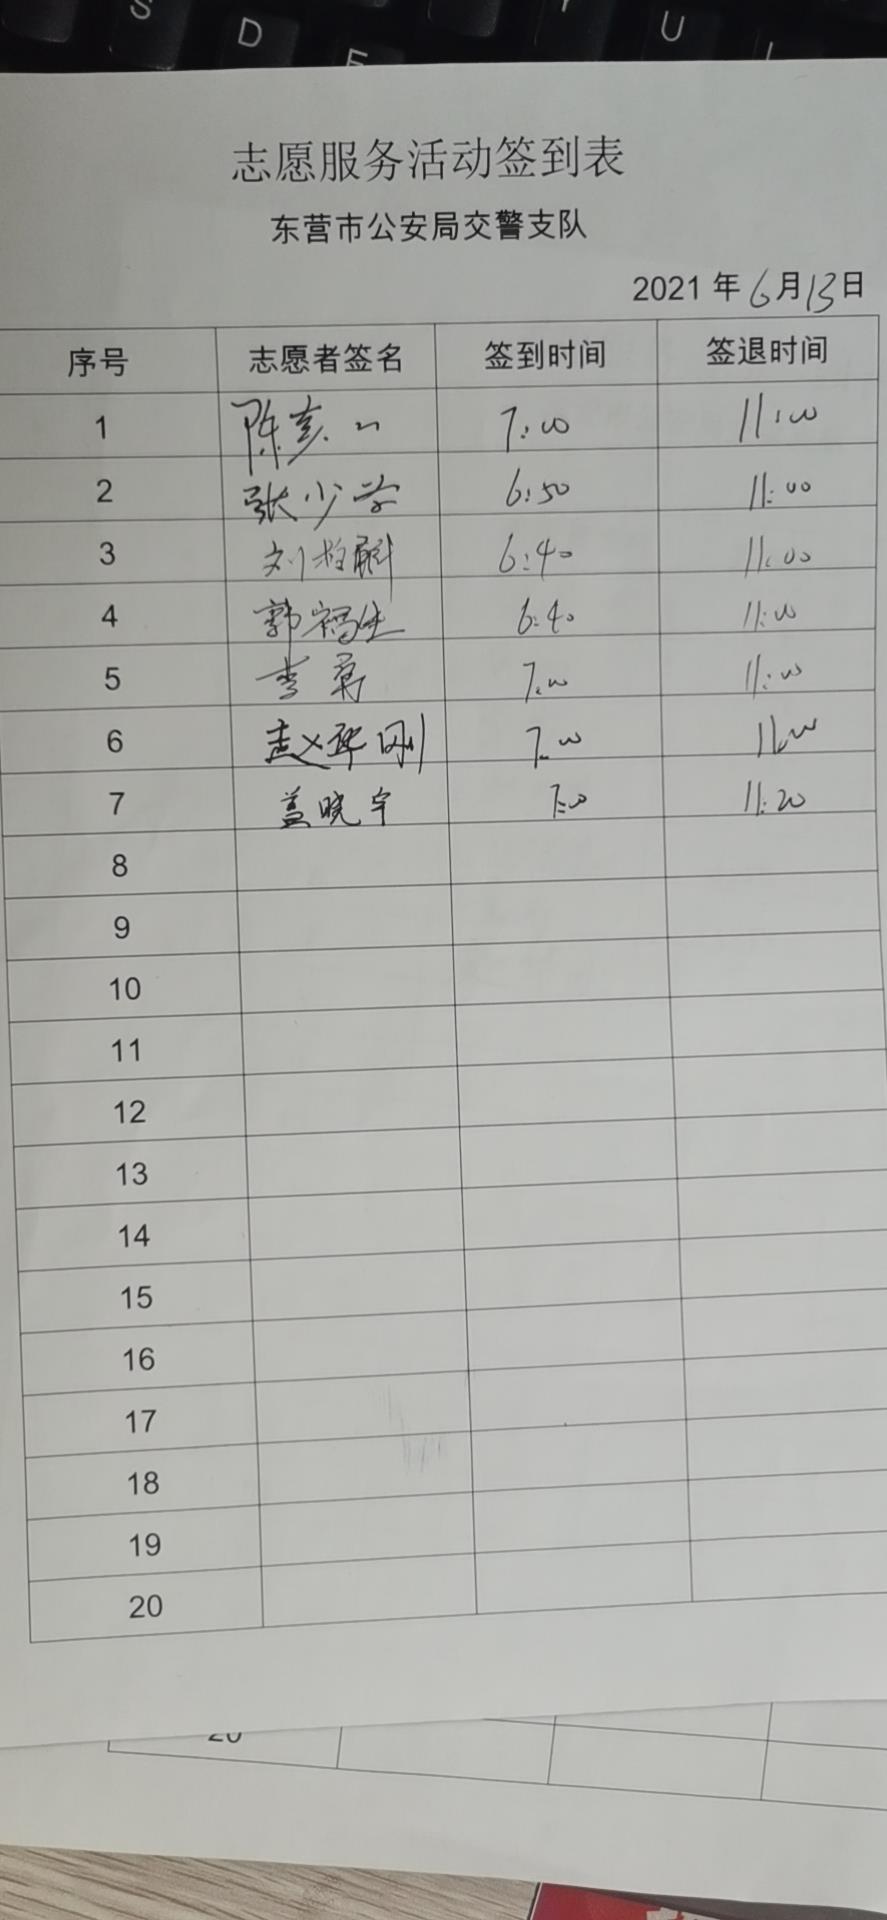 S D F U
志愿服务活动签到表
东营市公安局交警支队
2021 年 6 月 13 日
序号 志愿者签名 签到时间 签退时间
1 陈 7:00 11:00
2 张少学 6:50 11:00
3 刘 6:40 11:00
4 郭福生 6:40 11:00
5 李勇 7:00 11:00
6 赵华刚 7:00 11:00
7 盖晓宇 7:00 11:20
8
9
10
11
12
13
14
15
16
17
18
19
20
20